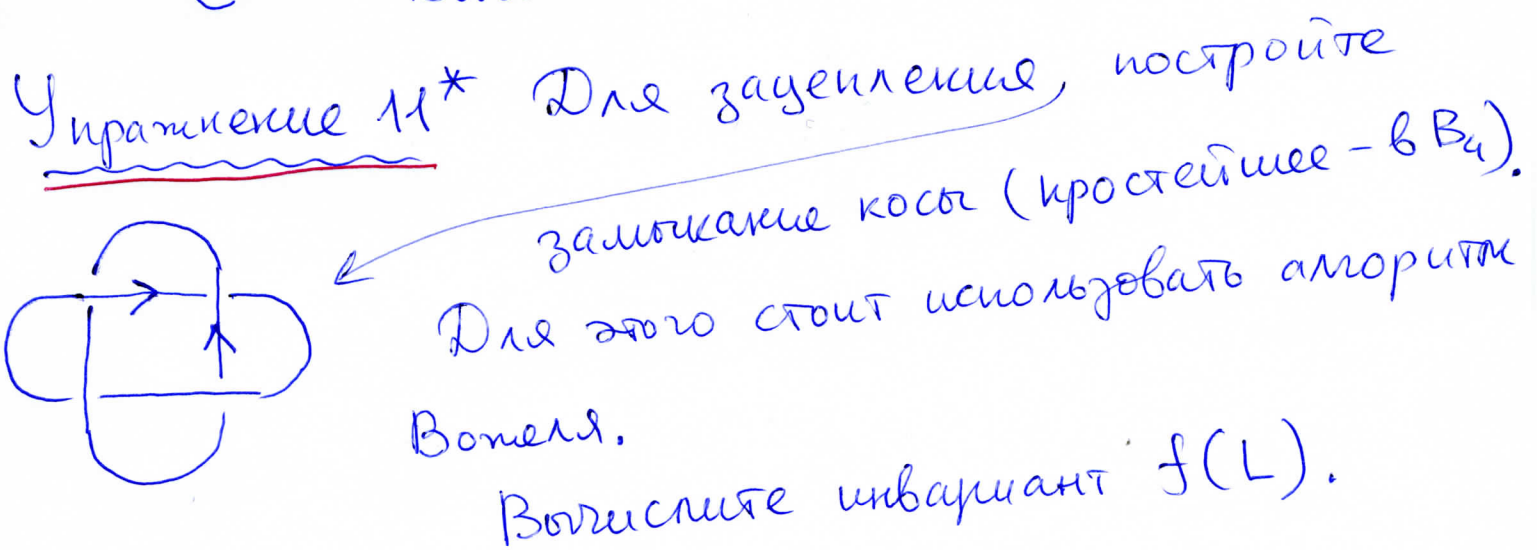 Упражнение 11* Для зацепления, постройте
замыкание косы (простейшее - в B₄).
Для этого стоит использовать алгоритм
Вожеля.
Вычислите инвариант f(L).